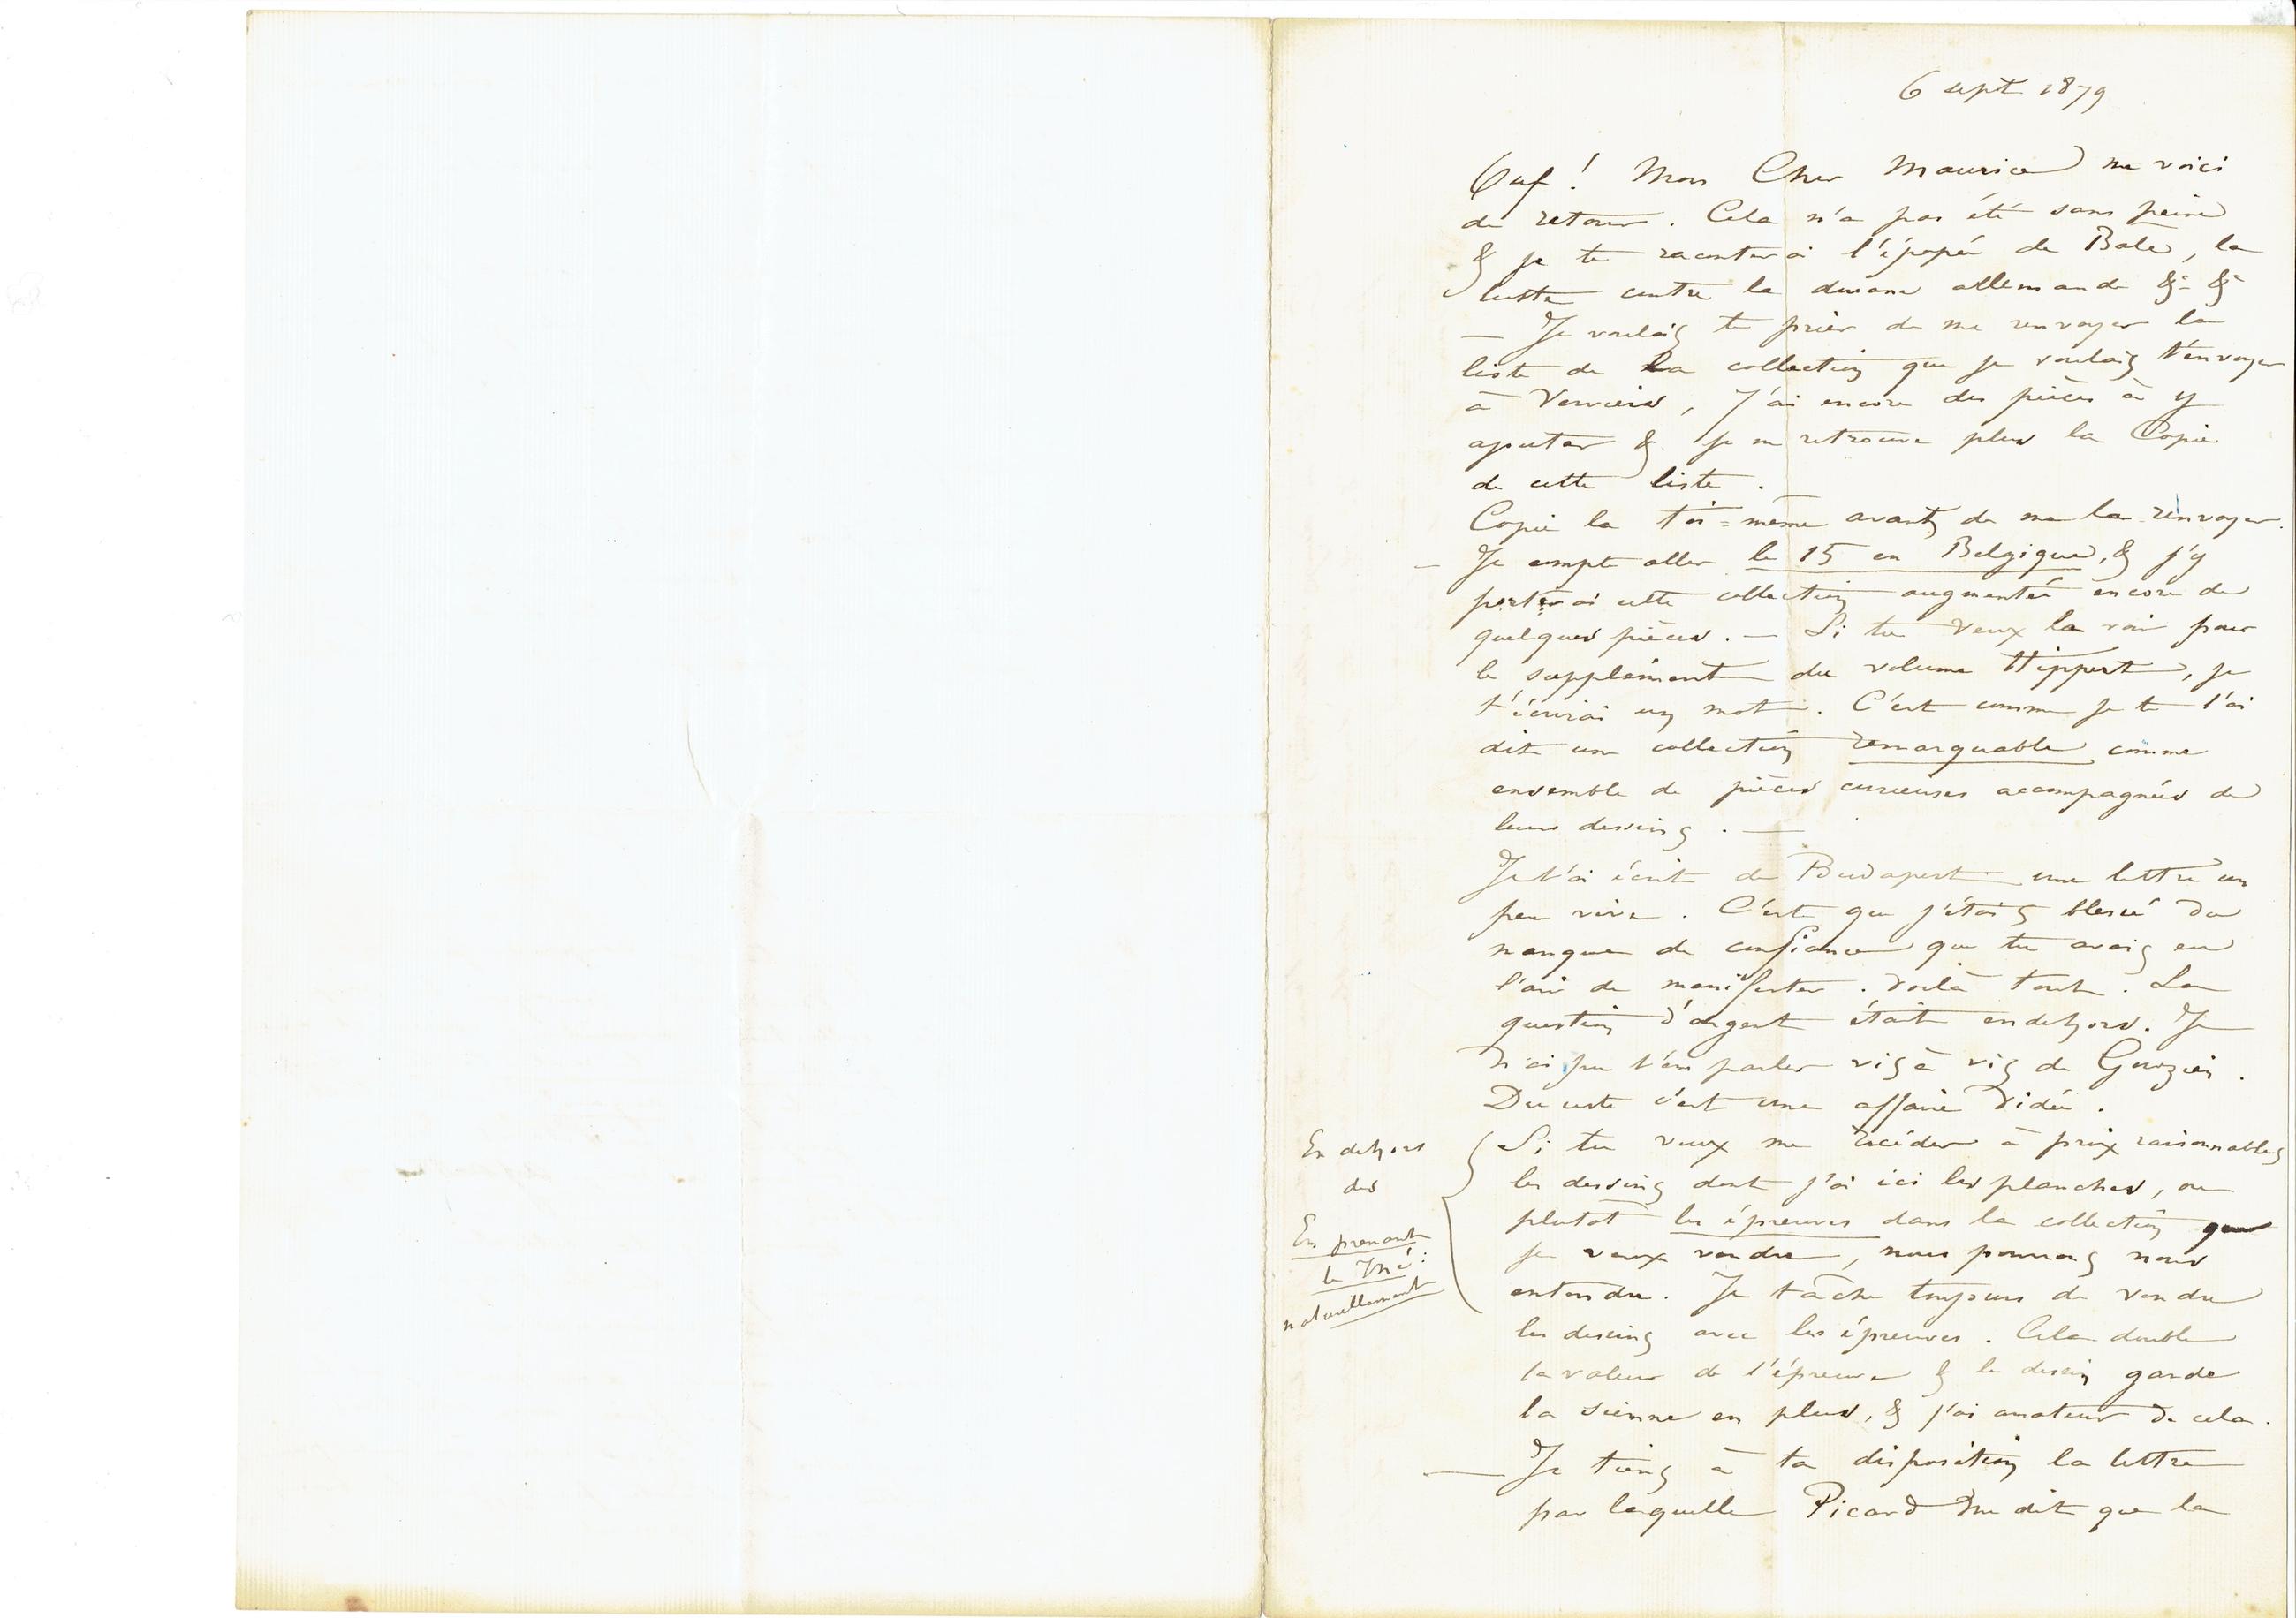 6 sept 1879
Ouf ! Mon Cher Maurice me voici
de retour. Cela n'a pas été sans peine
& je te raconterai l'épopée de Bâle, la
lutte contre la douane allemande &- &-
— Je voulais te prier de me renvoyer la
liste de la collection que je voulais t'envoyer
à Verviers, J'ai encore des pièces à y
ajouter & je ne retrouve plus la Copie
de cette liste.
Copie la toi=même avant de me la renvoyer.
— Je compte aller le 15 en Belgique, & j'y
porterai cette collection augmentée encore de
quelques pièces. — Si tu veux la voir pour
le supplément du volume Hippert, je
t'écrirai un mot. C'est comme je te l'ai
dit une collection remarquable comme
ensemble de pièces curieuses accompagnées de
leurs dessins. —
Je t'ai écrit de Budapest une lettre un
peu vive. C'est que j'étais blessé du
manque de confiance que tu avais eu
l'air de manifester. Voilà tout. La
question d'argent était en dehors. Je
n'ai pu t'en parler vis à vis de Gouzien.
Du reste c'est une affaire vidée.
Si tu veux me recéder à prix raisonnables
les dessins dont j'ai ici les planches, ou
plutot les épreuves dans la collection que
je veux vendre, nous pourrons nous
entendre. Je tâche toujours de vendre
les dessins avec les épreuves. Cela double
la valeur de l'épreuve & le dessin garde
la sienne en plus, & j'ai amateur de cela.
— Je tiens à ta disposition la lettre
par laquelle Picard me dit que la
En dehors
des
En prenant
naturellement